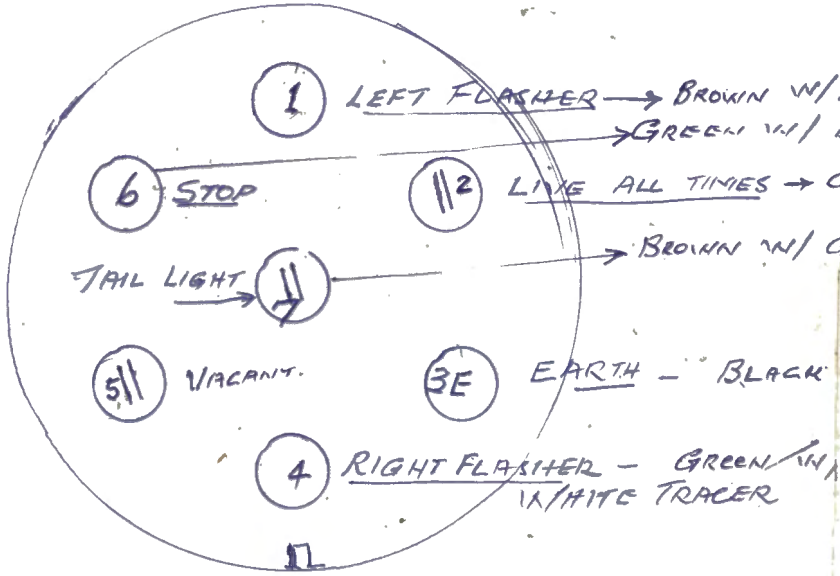 1 LEFT FLASHER → BROWN W/
→ GREEN W/
6 STOP
2 LIVE ALL TIMES →
TAIL LIGHT → 7 → BROWN W/
5 VACANT.
3E EARTH - BLACK
4 RIGHT FLASHER - GREEN W/
WHITE TRACER